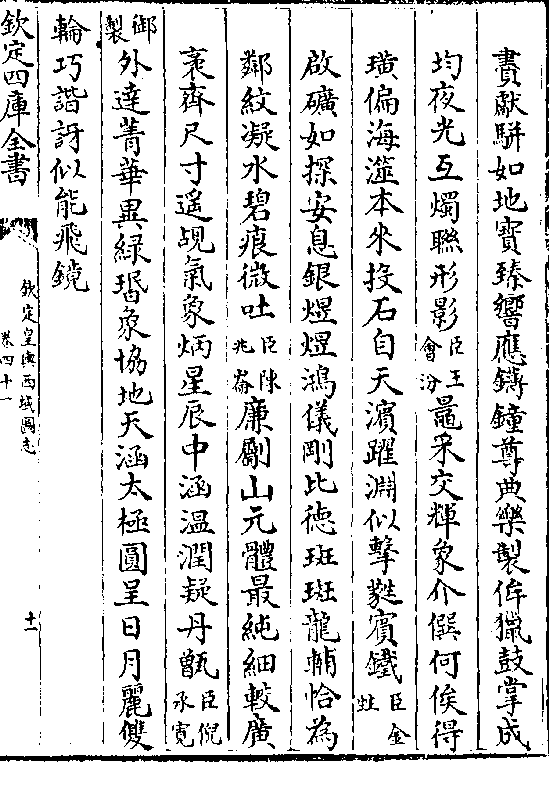 賮獻駢如地寳臻響應鑄鐘尊典樂製侔獵鼓掌成
均夜光互燭聯形影臣王會汾鼂采交輝象介僎何俟得
璜偏海澨本來投石自天濱躍淵似擊蕤賓鐵臣金甡
啟礦如探安息銀煜煜鴻儀剛比徳斑斑龍輔恰為
鄰紋凝水碧痕微吐臣陳兆崙廉劚山元體最純細較廣
袤齊尺寸遥覘氣象炳星辰中涵温潤疑丹甑臣倪承寛
御製外逹菁華異緑瑉象協地天涵太極圓呈日月麗雙
輪巧諧訝似能飛鏡
欽定四庫全書
欽定皇輿西域圖志
卷四十一
十一